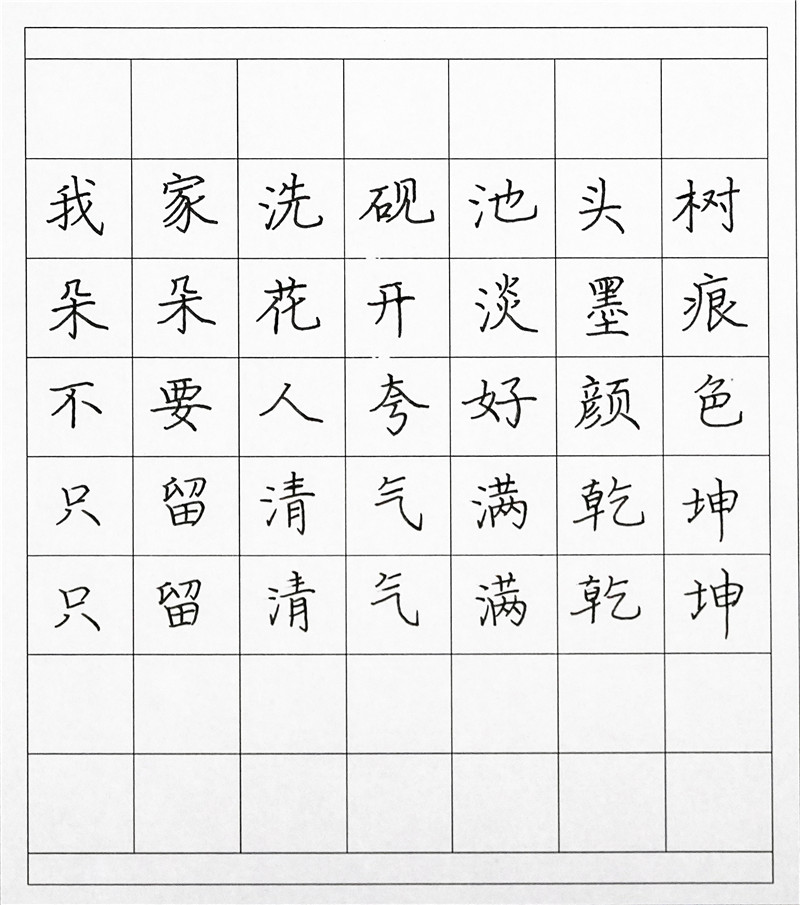 我家洗砚池头树
朵朵花开淡墨痕
不要人夸好颜色
只留清气满乾坤
只留清气满乾坤